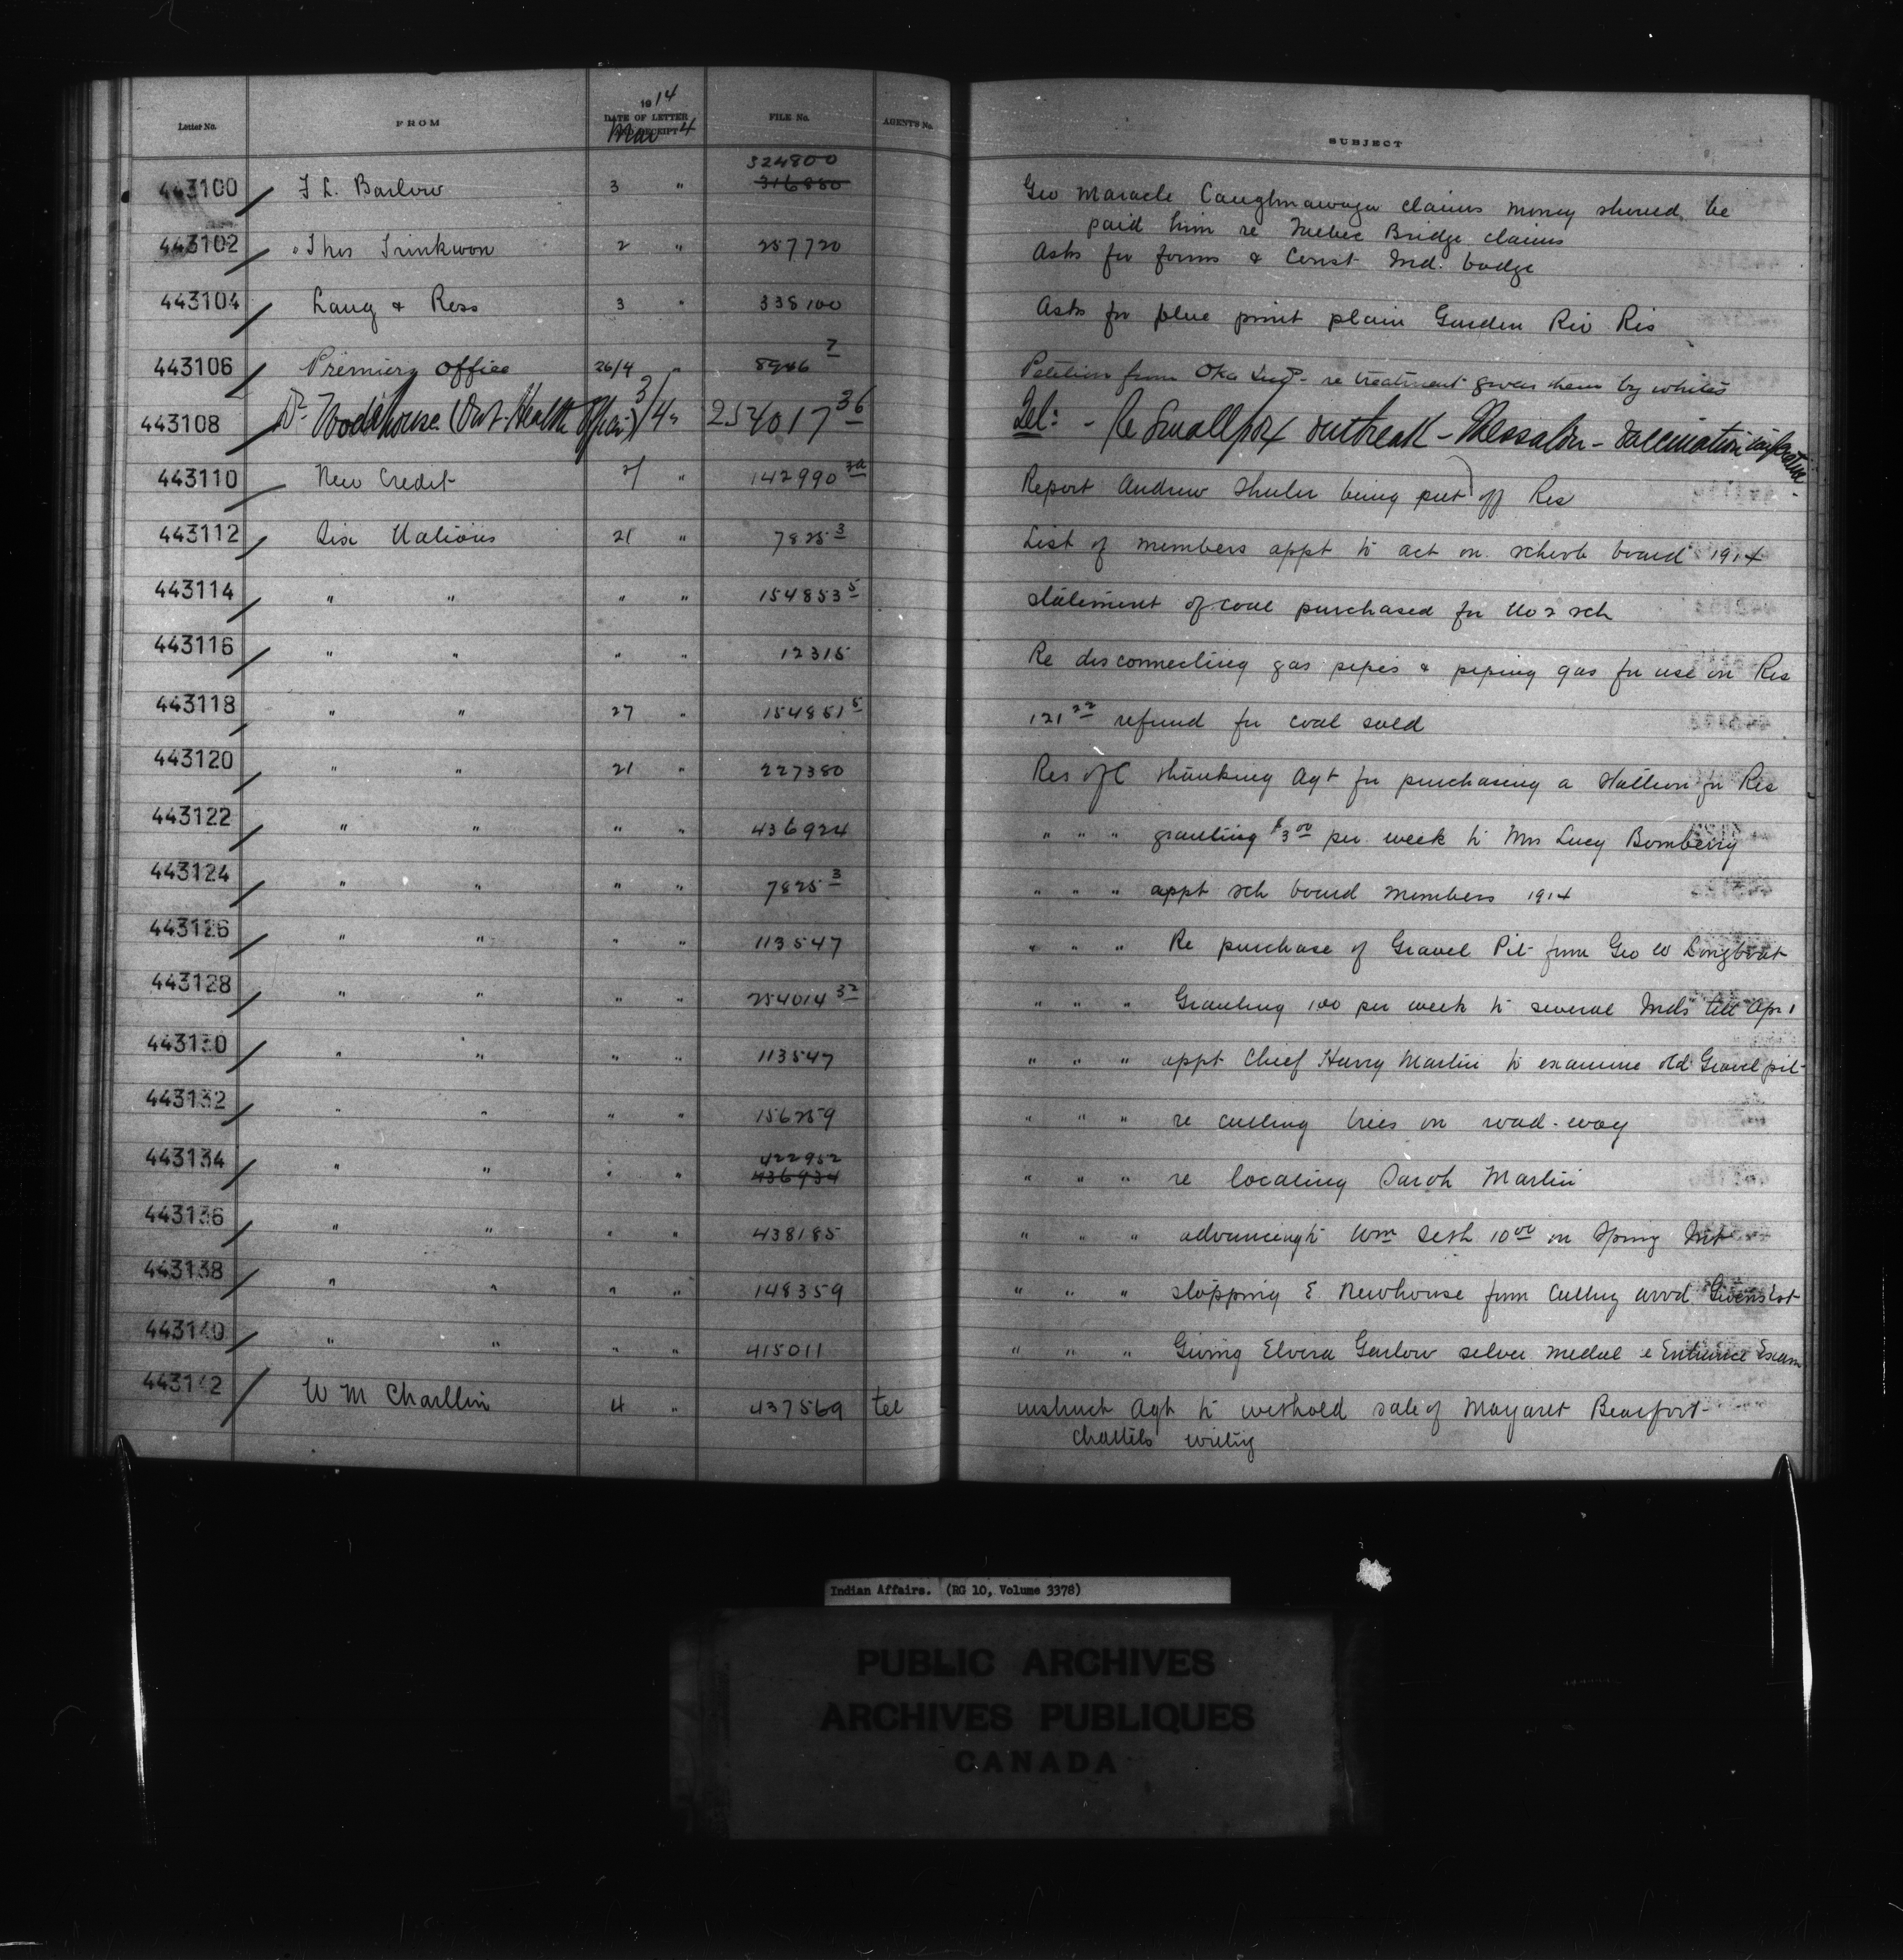 Letter No. FROM 1914 DATE OF LETTER AND RECEIPT Mar 4 FILE No. AGENT'S No. SUBJECT
324800
443100 F L. Barlow 3 " 316880 Geo Maracle Caughnawaga claims money should be
paid him re Quebec Bridge claims
443102 " Thos Trinkwon 2 " 257720 Asks for forms & Const Ind. badge
443104 Laug & Ross 3 " 338100 Asks for blue print plain Garden Riv Res
443106 Premiers Office 26/4 " 8946 7 Petition from Oka Inds re treatment given them by whites
443108 Dr. Woodhouse (Dist. Health Officer) 3/4 " 254017 36 Tel: - Re Smallpox outbreak - Thessalon - vaccination imperative -
443110 New Credit 21 " 142990 Report Andrew Shuler being put off Res
443112 Six Nations 21 " 7825 3 List of members appt to act on school board 1914
443114 " " " " 154853 5 Statement of coal purchased for No 2 sch
443116 " " " " 12315 Re disconnecting gas pipes & piping gas for use on Res
443118 " " 27 " 154851 5 121 22 refund for coal sold
443120 " " 21 " 227380 Res of C thanking Agt for purchasing a stallion for Res
443122 " " " " 436924 " " " granting $3 00 per week to Mrs Lucy Bomberry
443124 " " " " 7825 3 " " " appt sch board members 1914
443126 " " " " 113547 " " " Re purchase of Gravel Pit from Geo W Longboat
443128 " " " " 254014 32 " " " Granting 100 per week to several Inds till Apr 1
443130 " " " " 113547 " " " appt Chief Harry Martin to examine old Gravel pit
443132 " " " " 156259 " " " re cutting trees on road-way
422952
443134 " " " " 436934 " " " re locating Sarah Martin
443136 " " " " 438185 " " " advancing to Wm Seth 10 00 on Spring Int
443138 " " " " 148359 " " " stopping E. Newhouse from cutting wood Givens Est
443140 " " " " 415011 " " " Giving Elvira Garlow silver medal e Entrance Exam
443142 W M Charlton 4 " 437569 tel instruct Agt to withold sale of Margaret Bearfoot
chattels writing
Indian Affairs. (RG 10, Volume 3378)
PUBLIC ARCHIVES
ARCHIVES PUBLIQUES
CANADA